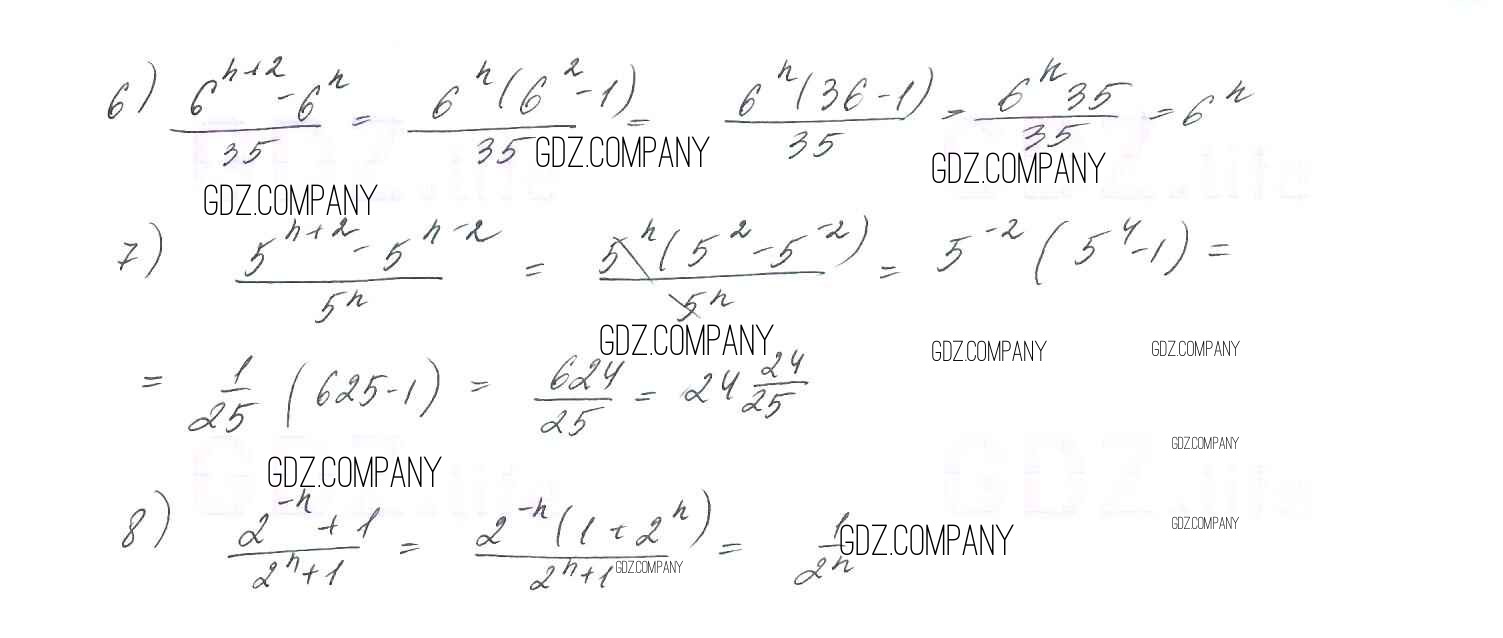 6) (6^(n+2) - 6^n)/35 = (6^n(6^2 - 1))/35 = (6^n(36 - 1))/35 = (6^n 35)/35 = 6^n
GDZ.COMPANY GDZ.COMPANY
GDZ.COMPANY
7) (5^(n+2) - 5^(n-2))/5^n = (5^n(5^2 - 5^(-2)))/5^n = 5^(-2) (5^4 - 1) =
GDZ.COMPANY GDZ.COMPANY GDZ.COMPANY
= 1/25 (625 - 1) = 624/25 = 24 24/25
GDZ.COMPANY
GDZ.COMPANY
8) (2^(-n) + 1)/(2^n + 1) = (2^(-n)(1 + 2^n))/(2^n + 1) = 1/2^n
GDZ.COMPANY GDZ.COMPANY
GDZ.COMPANY